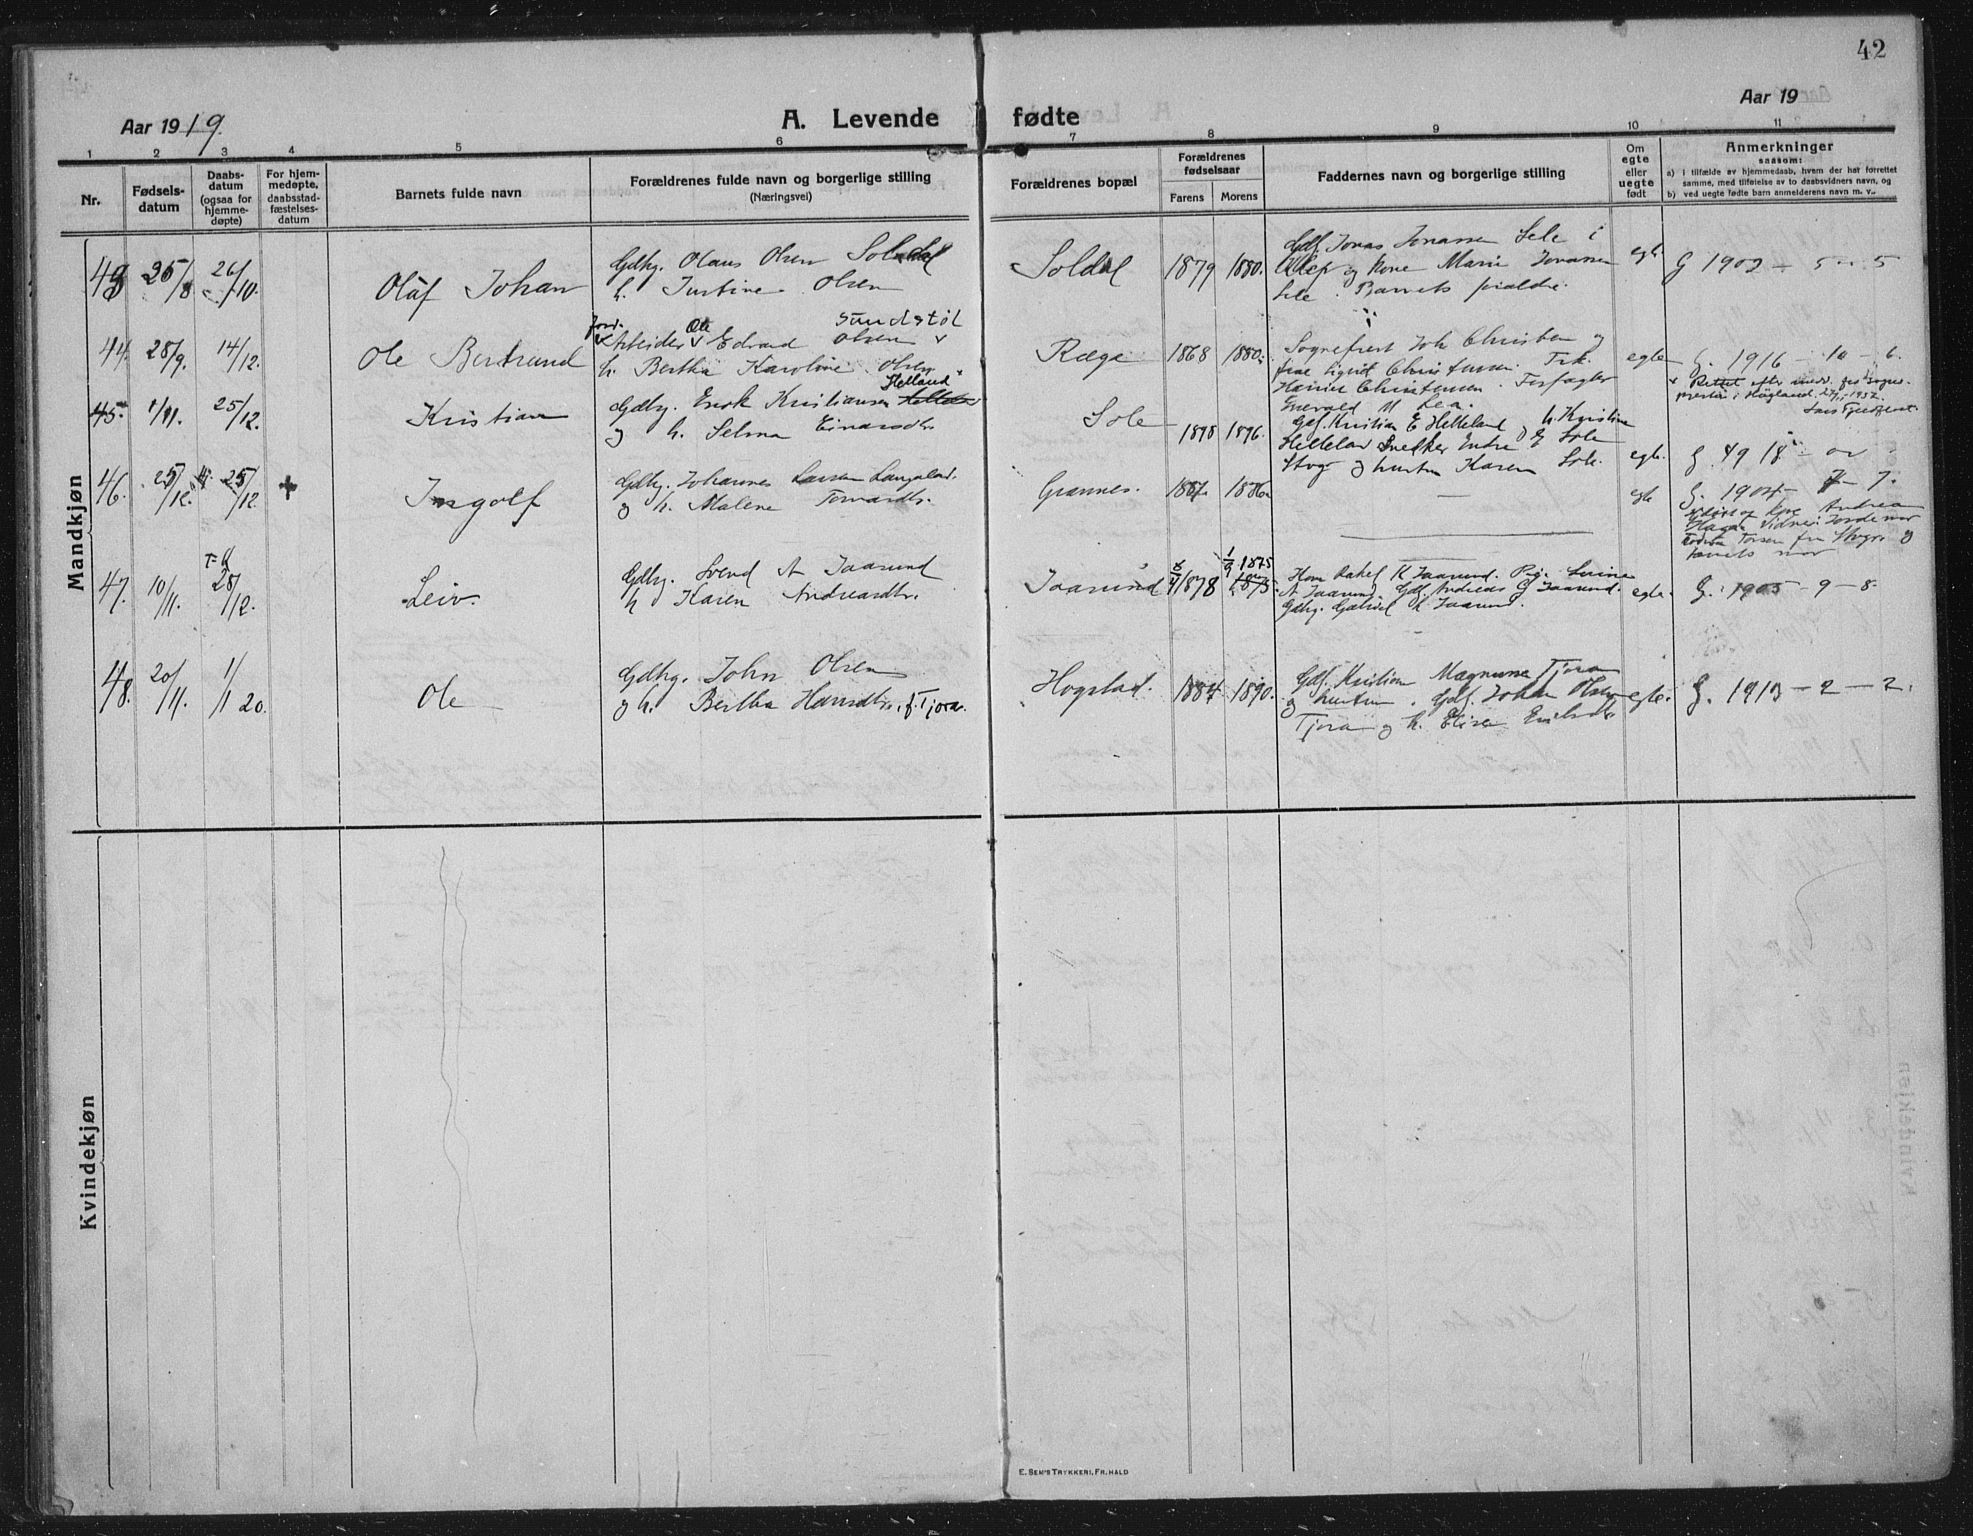 42
Aar 1919.
A. Levende fødte
Aar 19
1 2 3 4 5 6 7 8 9 10 11
Nr.
Fødsels-
datum
Daabs-
datum
(ogsaa for
hjemme-
døpte)
For hjem-
medøpte,
daabsstad-
fæstelses-
datum
Barnets fulde navn
Forældrenes fulde navn og borgerlige stilling
(Næringsvei)
Forældrenes bopæl
Forældrenes
fødselsaar
Farens
Morens
Faddernes navn og borgerlige stilling
Om
egte
eller
uegte
født
Anmerkninger
saasom:
a) i tilfælde av hjemmedaab, hvem der har forrettet
samme, med tilføielse av to daabsvidners navn, og
b) ved uegte fødte barn anmelderens navn m. v..
Mandkjøn
43 25/8 26/10. Olaf Johan
Gdbg. Olaus Olsen Soldal
h. Justine Olsen
Soldal 1879 1880.
Gdf. Jonas Jonassen Sele i
Klep og kone Marie Jonassen
Sele. Barnets forældre.
egte G 1903 - 5 - 5
44. 28/9. 14/12. Ole Bertrand
Jord- Ole Sundstøl
Arbeider v Edvard Olsen v
h. Bertha Karoline Olsen
Ræge 1868 1880.
Sogneprest Joh Christensen og
frue Sigrid Christensen. Frk.
Hansine Christensen.
Enevald M Lea.
egte G. 1916 - 10 - 6.
Rettet efter
prestin i Høgland
45. 1/11. 25/12. Kristian
Gdbg. Enok Kristiansen Helland
og h. Selma Einarsdtr.
Sole 1898 1896.
Gdf. Kristian E Helleland og h. Kristine
Helleland Snekker Endre G Sole
og hustru Karen Sole.
egte. G. 1918 -
46. 25/12. 25/12 + Ingolf
Gdbg. Johannes Larsen Langeland.
og h. Malene Tormodsdtr.
Grannes. 1887. 1886.
egte G. 1904 - 7 - 7.
Andrea
Haga. Vidner: Jordemor
og
barnets mor
47. 10/11. 28/12. Leiv.
Gdbg. Svend A Jaasund
h Karen Andreasdtr.
Jaasund 8/4 1878 1/9 1875
1875.
Kone Rakel K Jaasund. Pige Serine
A Jaasund. Gdf. Andreas G Jaasund.
Gdbg. Gabriel K Jaasund.
egte. G. 1905 - 9 - 8.
48. 20/11. 1/1 20. Ole
Gdbg. John Olsen
og h. Bertha Hansdtr., f. Tjora.
Hogstad. 1884 1890.
Gdf. Kristian Magnussen Tjora
og hustru. Gdf. Johan Olsen
Tjora og h. Elise
egte. G. 1913 - 2 - 2.
Kvindekjøn
E. Sem's Trykkeri, Fr.hald